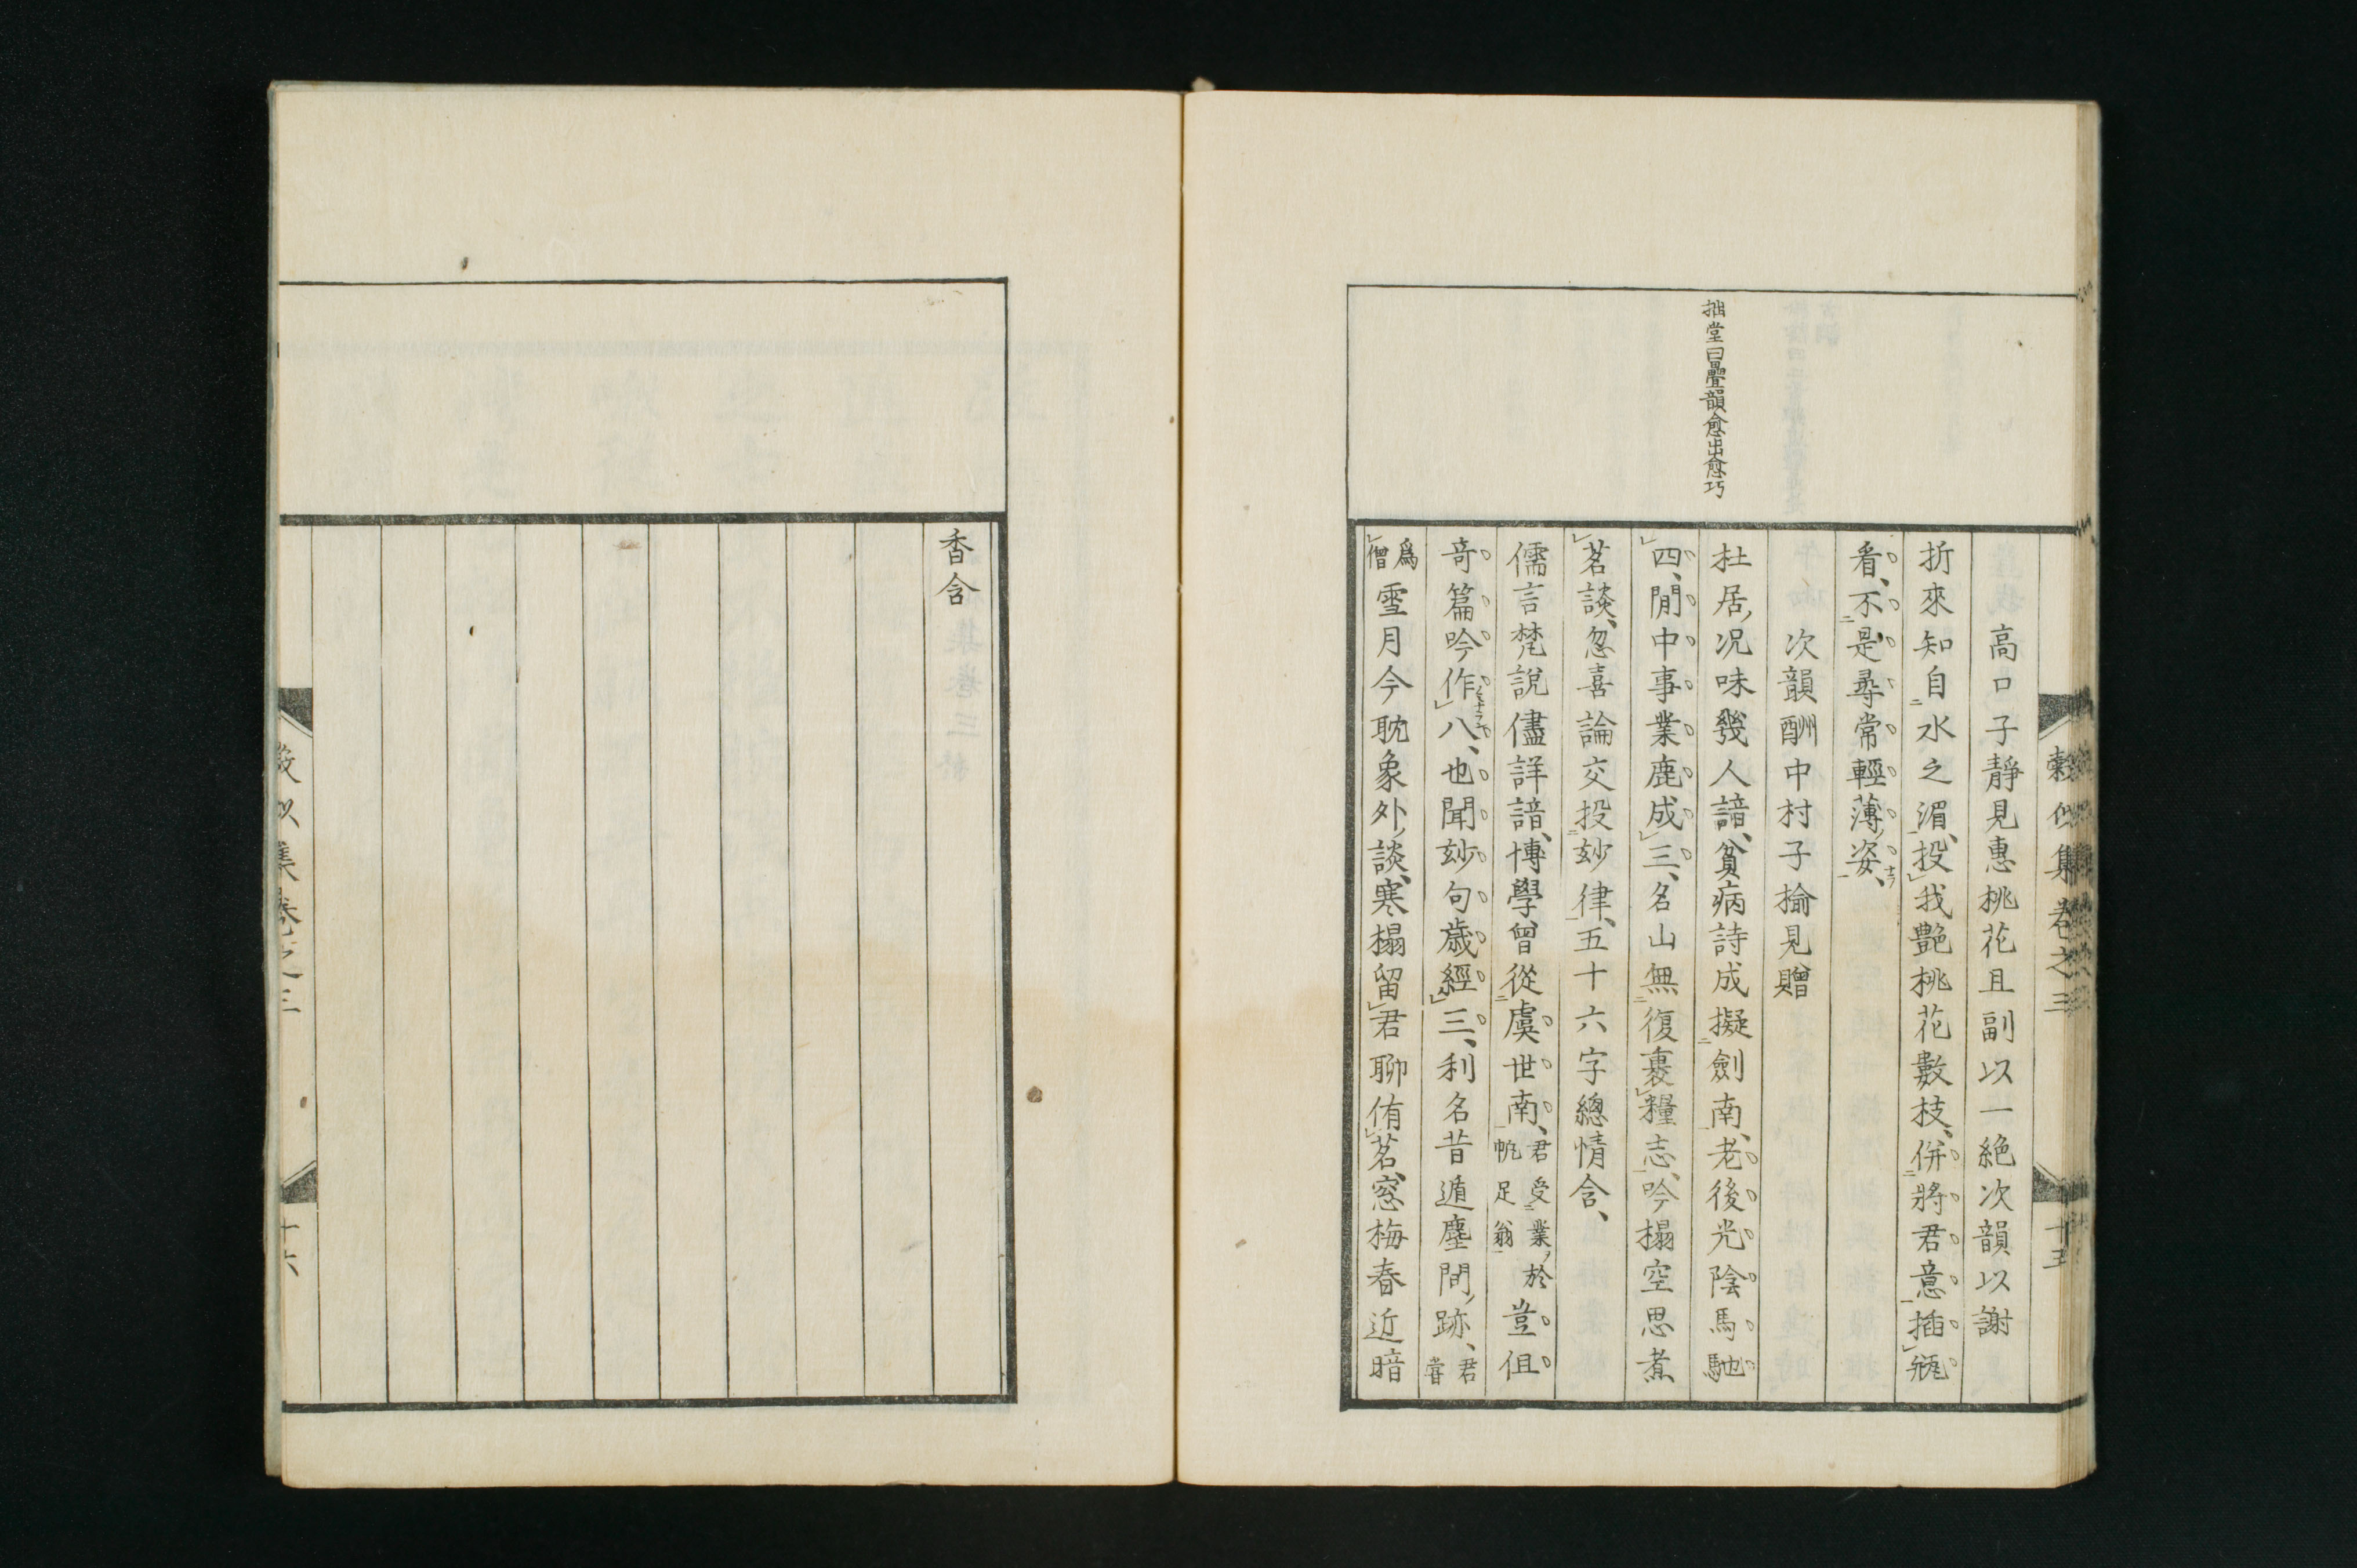 榖似集卷之三
十五
高口子靜見惠桃花且副以一絶次韻以謝
折來知自水之湄投我艶桃花數枝併將君意插瓶
看不是尋常輕薄姿
次韻酬中村子揄見贈
拙堂曰疊韻愈出愈巧
杜居況味幾人諳貧病詩成擬劍南老後光陰馬馳
四閒中事業鹿成三名山無復裹糧志吟榻空思煮
茗談忽喜論交投玅律五十六字總情含
儒言梵說儘詳諳博學曾從虞世南君受業於帆足翁豈伹
奇篇吟作八也聞玅句歲經三利名昔遁塵間跡君嘗
爲僧雪月今耽象外談寒榻留君聊侑茗窓梅春近暗
香含
集卷之三
十六